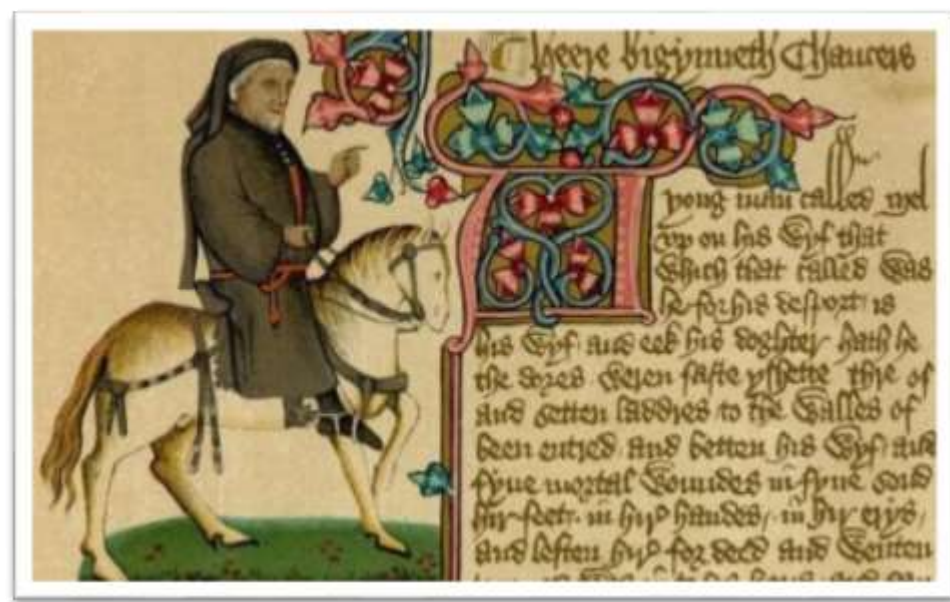 heere bigynneth Chaucers
A
yong man called Mel
vp on his wyf that
Which that called was
he for his desport is
his wyf and eek his doghter hath he
the dores weren faste yshette thre of
and setten laddres to the walles of
been entred and betten his wyf and
fyue mortal woundes in fyue sond
hir feet in hir handes in hir erys
and leften hir for deed and wenten